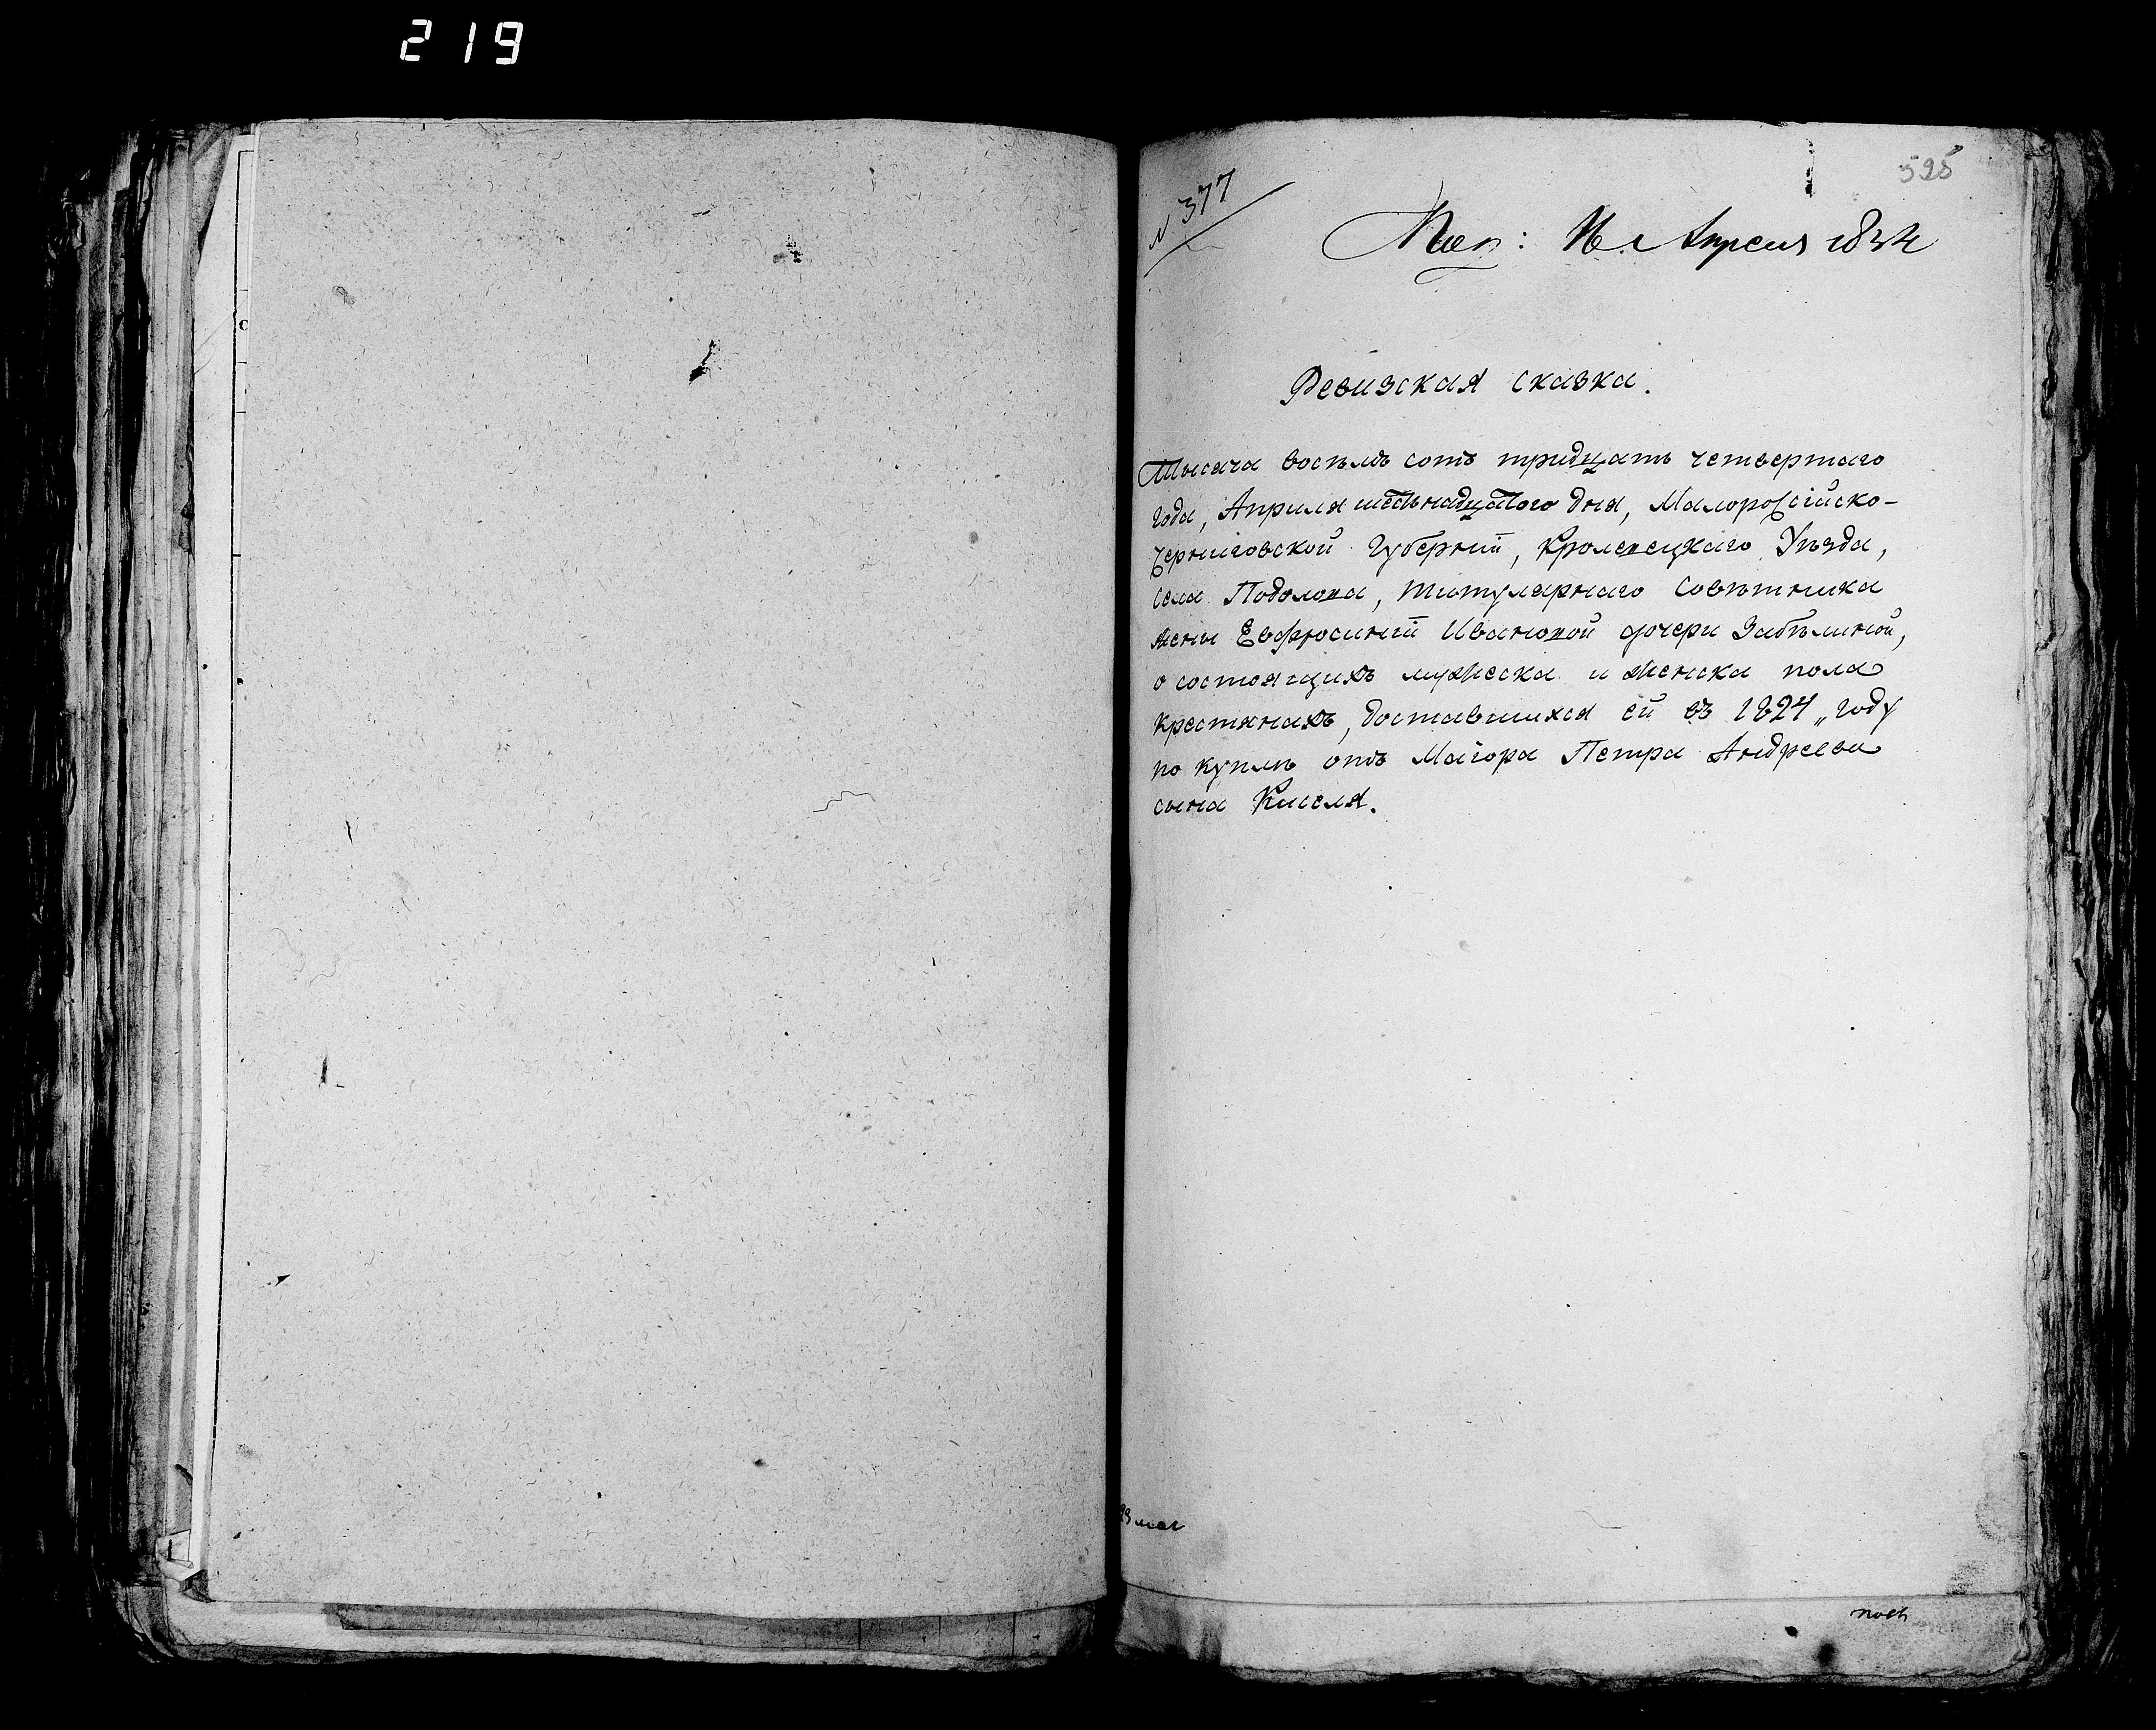 219
525
N 377
16 Апреля 1834
Ревизская сказка.
Тысяча восемъ сотъ тридцать четвертаго
года, Априля шестьнадцатого дня, Малоросійско-
Черниговской Губерніи, Кролевецкаго Уѣзда,
села Подолова, титулярнаго совѣтника
жены Евфросиніи Ивановой дочери Забѣлиной,
о состоящихъ мужеска и женска пола
крестянахъ, доставшихся ей въ 1824 „ году
по куплѣ отъ Маіора Петра Андреева
сына Киселя.